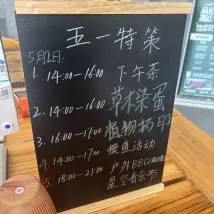 五一特策
5月2日:
1. 14:00-16:00 下午茶
2. 14:00-16:00 草木染蛋
3. 16:00-17:00 植物拓印
4. 14:00-17:00 摸鱼活动
5. 18:00-21:00 户外BBQ
星空音乐节